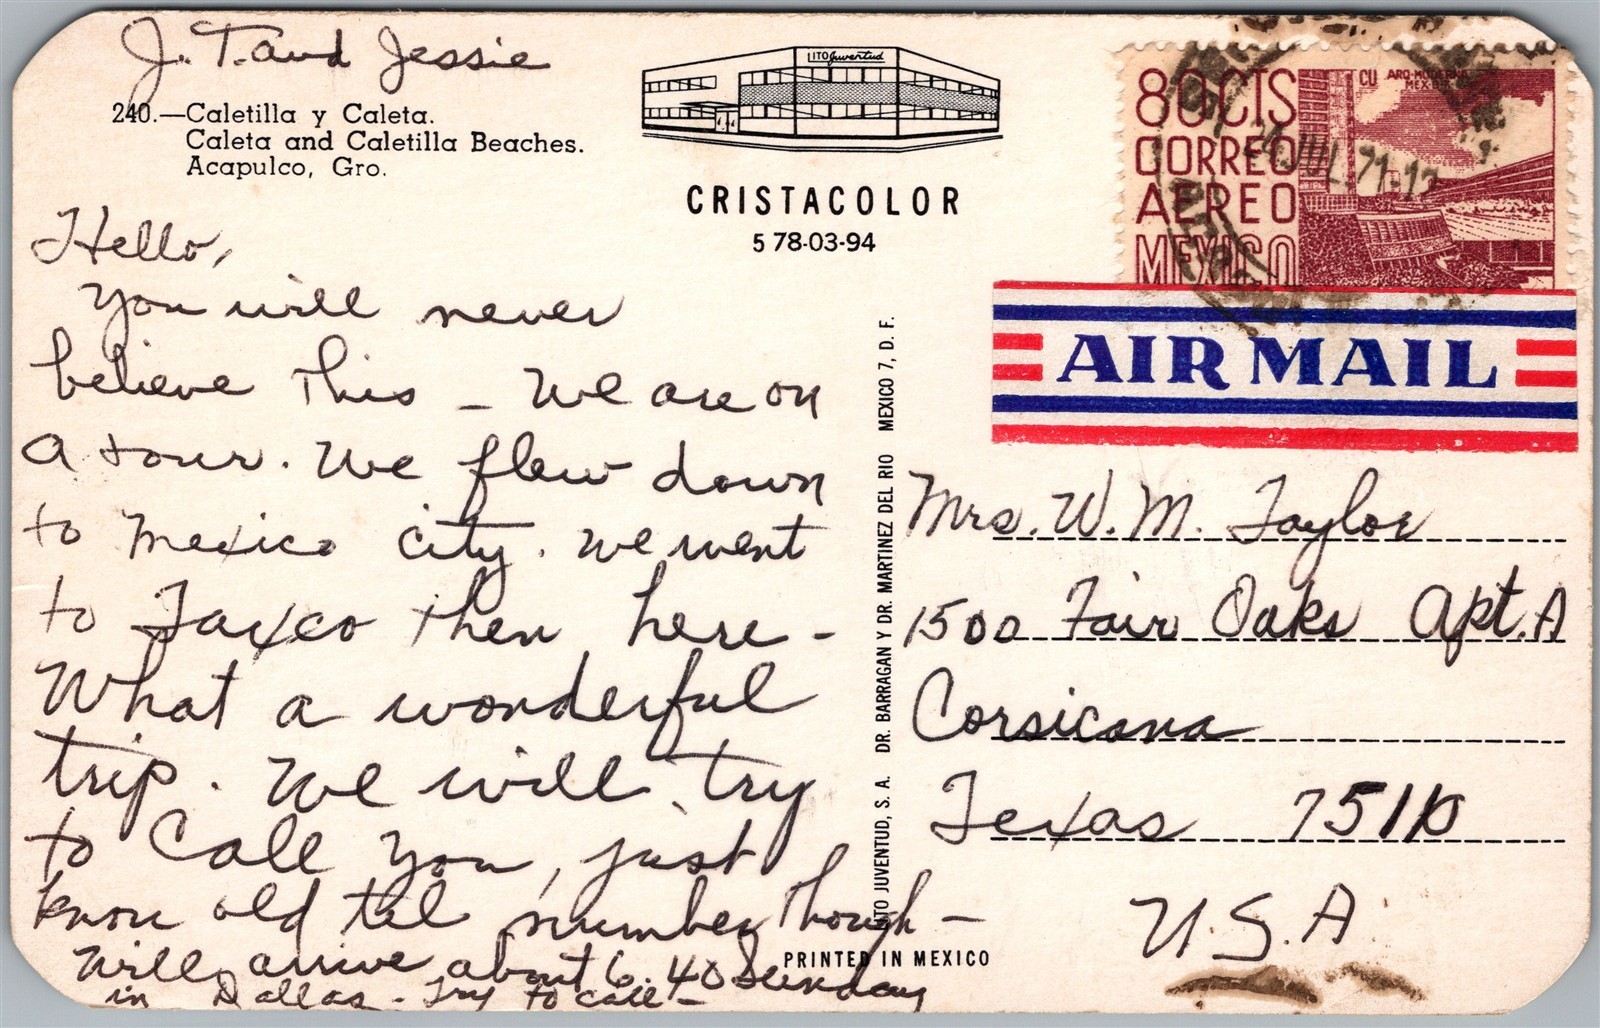 J. T. and Jessie
240.—Caletilla y Caleta.
Caleta and Caletilla Beaches.
Acapulco, Gro.
Hello,
You will never
believe this – We are on
a tour. We flew down
to Mexico city. We went
to Taxco then here –
What a wonderful
trip. We will try
to call you, just
know old tel number though –
Will arrive about 6:40 Sunday
in Dallas – Try to call –
LITO Juventud
CRISTACOLOR
5 78-03-94
LITO JUVENTUD, S. A. DR. BARRAGAN Y DR. MARTINEZ DEL RIO MEXICO 7, D. F.
PRINTED IN MEXICO
80CTS
CORREO
AEREO
MEXICO
CU ARQ-MODERNA
MEX-D.F.
JUL. 71-12
AIR MAIL
Mrs. W. M. Taylor
1500 Fair Oaks Apt. A
Corsicana
Texas 75110
U.S.A.